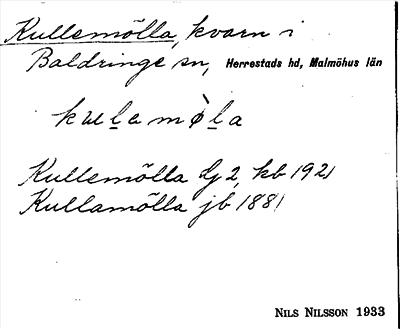 Kullemölla, kvarn i
Baldringe sn, Herrestads hd, Malmöhus län
Kullemölla lj 2, kb 1921
Kullamölla jb 1881
NILS NILSSON 1933